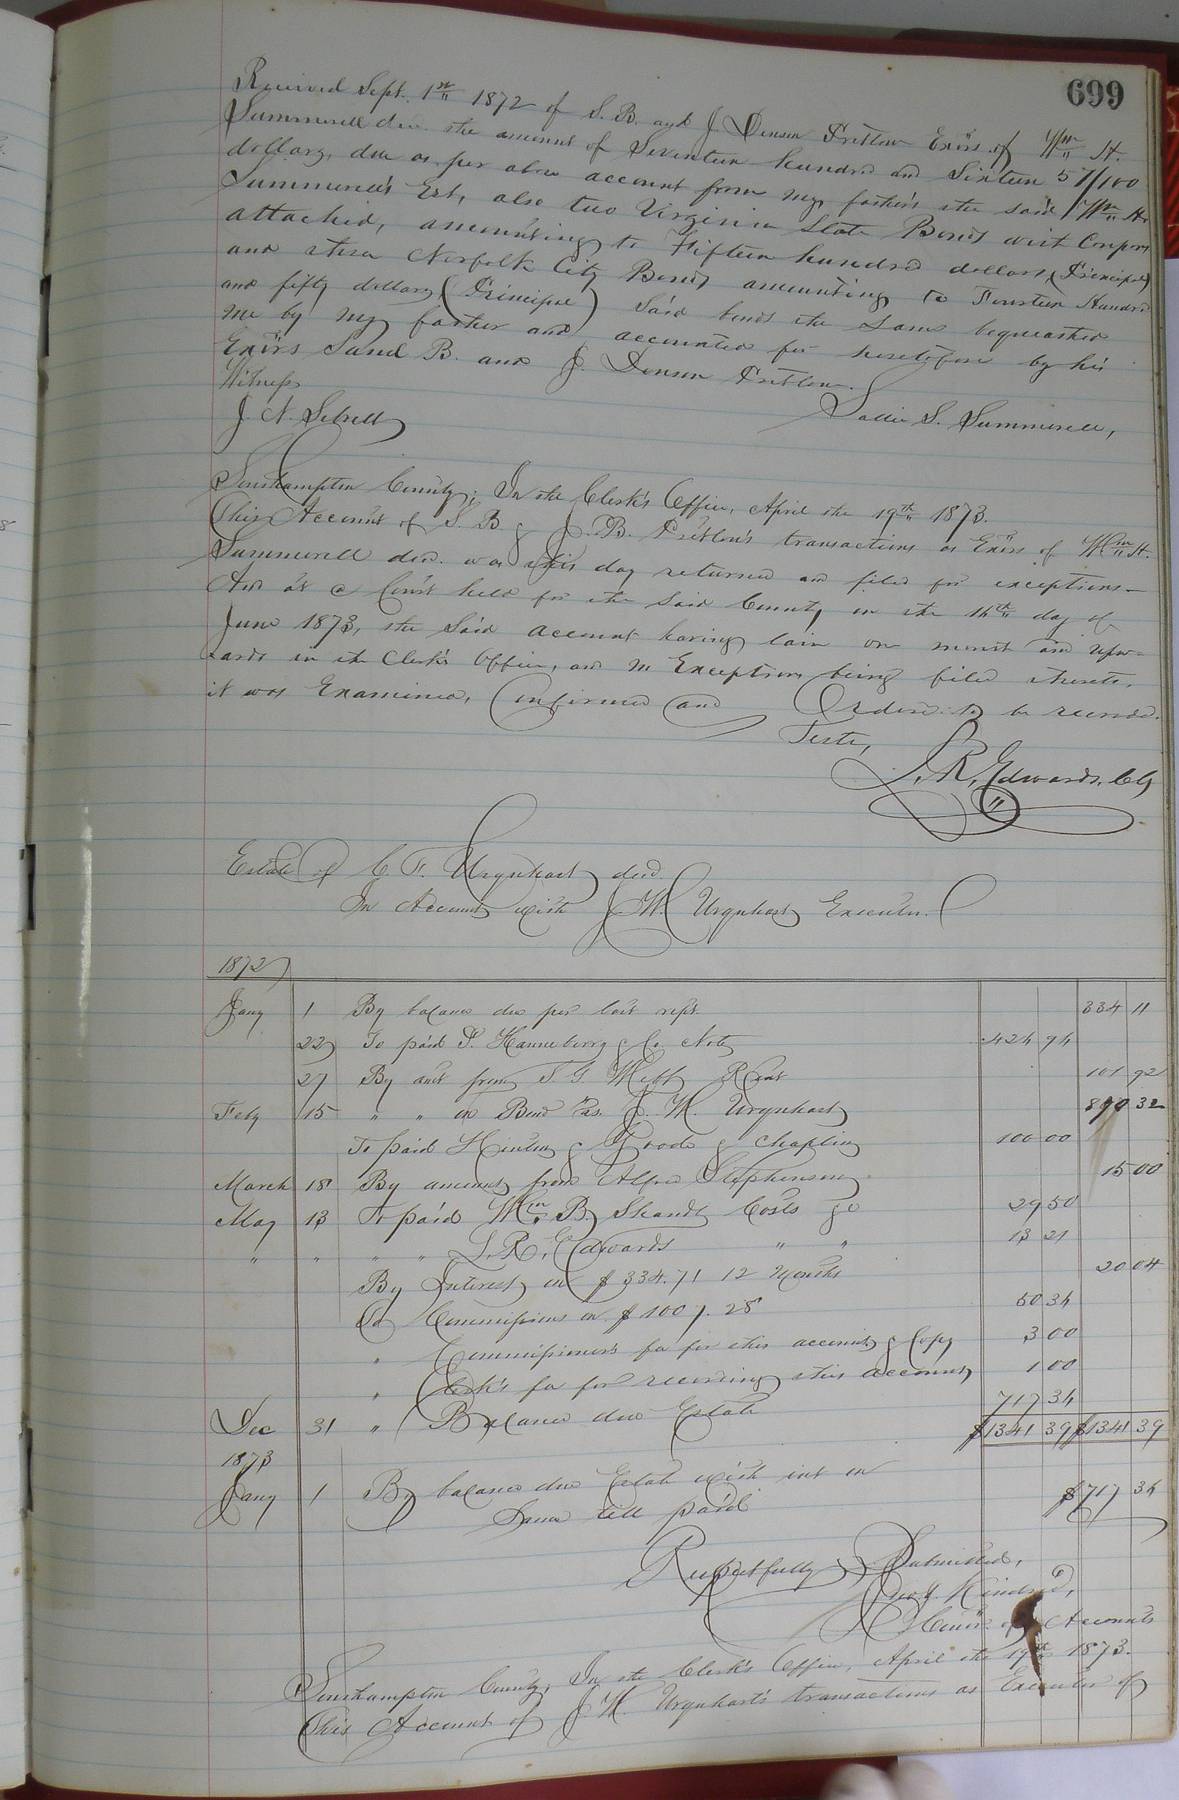 699
Received Sept. 1st 1872 of S. B. and J. Denson Pretlow Exors of Wm H.
Summerell decd. the amount of Seventeen hundred and Sixteen 57/100
dollars, due as per above account from my father's the said Wm H.
Summerell's Est, also two Virginia State Bonds with Coupons
attached, amounting to Fifteen hundred dollars (Principal)
and three Norfolk City Bonds amounting to Fourteen Hundred
and fifty dollars (Principal) Said bonds the same bequeathed
me by my father and accounted for heretofore by his
Exors Saml B. and J. Denson Pretlow.
Witness
J. N. Sebrell
Sallie S. Summerell,
Southampton County; In the Clerk's Office, April the 19th 1873.
This Account of S. B & J. B. Pretlow's transactions as Exors of Wm H.
Summerell decd. was this day returned and filed for exceptions—
And at a Court held for the said County on the 16th day of
June 1873, the Said account having lain one month and upw-
ards in the Clerk's Office, and no Exceptions being filed thereto,
it was Examined, Confirmed and Ordered to be recorded.
Teste,
L. R. Edwards, Clk
Estate of C. F. Urquhart decd.
In Account with J. W. Urquhart Executor.
1872
Jany 1 By balance due per last rept. 334 11
22 To paid & Co. Note 424 94
27 By amt from T. G. Webb Rent 101 92
Feby 15 " " on Bond J. W. Urquhart 870 32
To paid Hinton & Goode & Chaplin 100 00
March 18 By amount from Alfred Stephenson 15 00
May 13 To paid Wm B. Shands Costs &c 29 50
" " " " L. R. Edwards " " 13 21
By Interest on $334.71 12 Months 20 04
To Commissions on $1007.28 50 34
" Commissioners fee for this account & Copy 3 00
" Clerk's fee for recording this account 1 00
Dec 31 " Balance due Estate 717 34
$1341 39 $1341 39
1873
Jany 1 By balance due Estate with int on
Same till paid $717 34
Respectfully Submitted,
Jno. J. Kindred,
Commr. of Accounts
Southampton County, In the Clerk's Office, April the 19th 1873.
This Account of J. W. Urquhart's transactions as Executor of